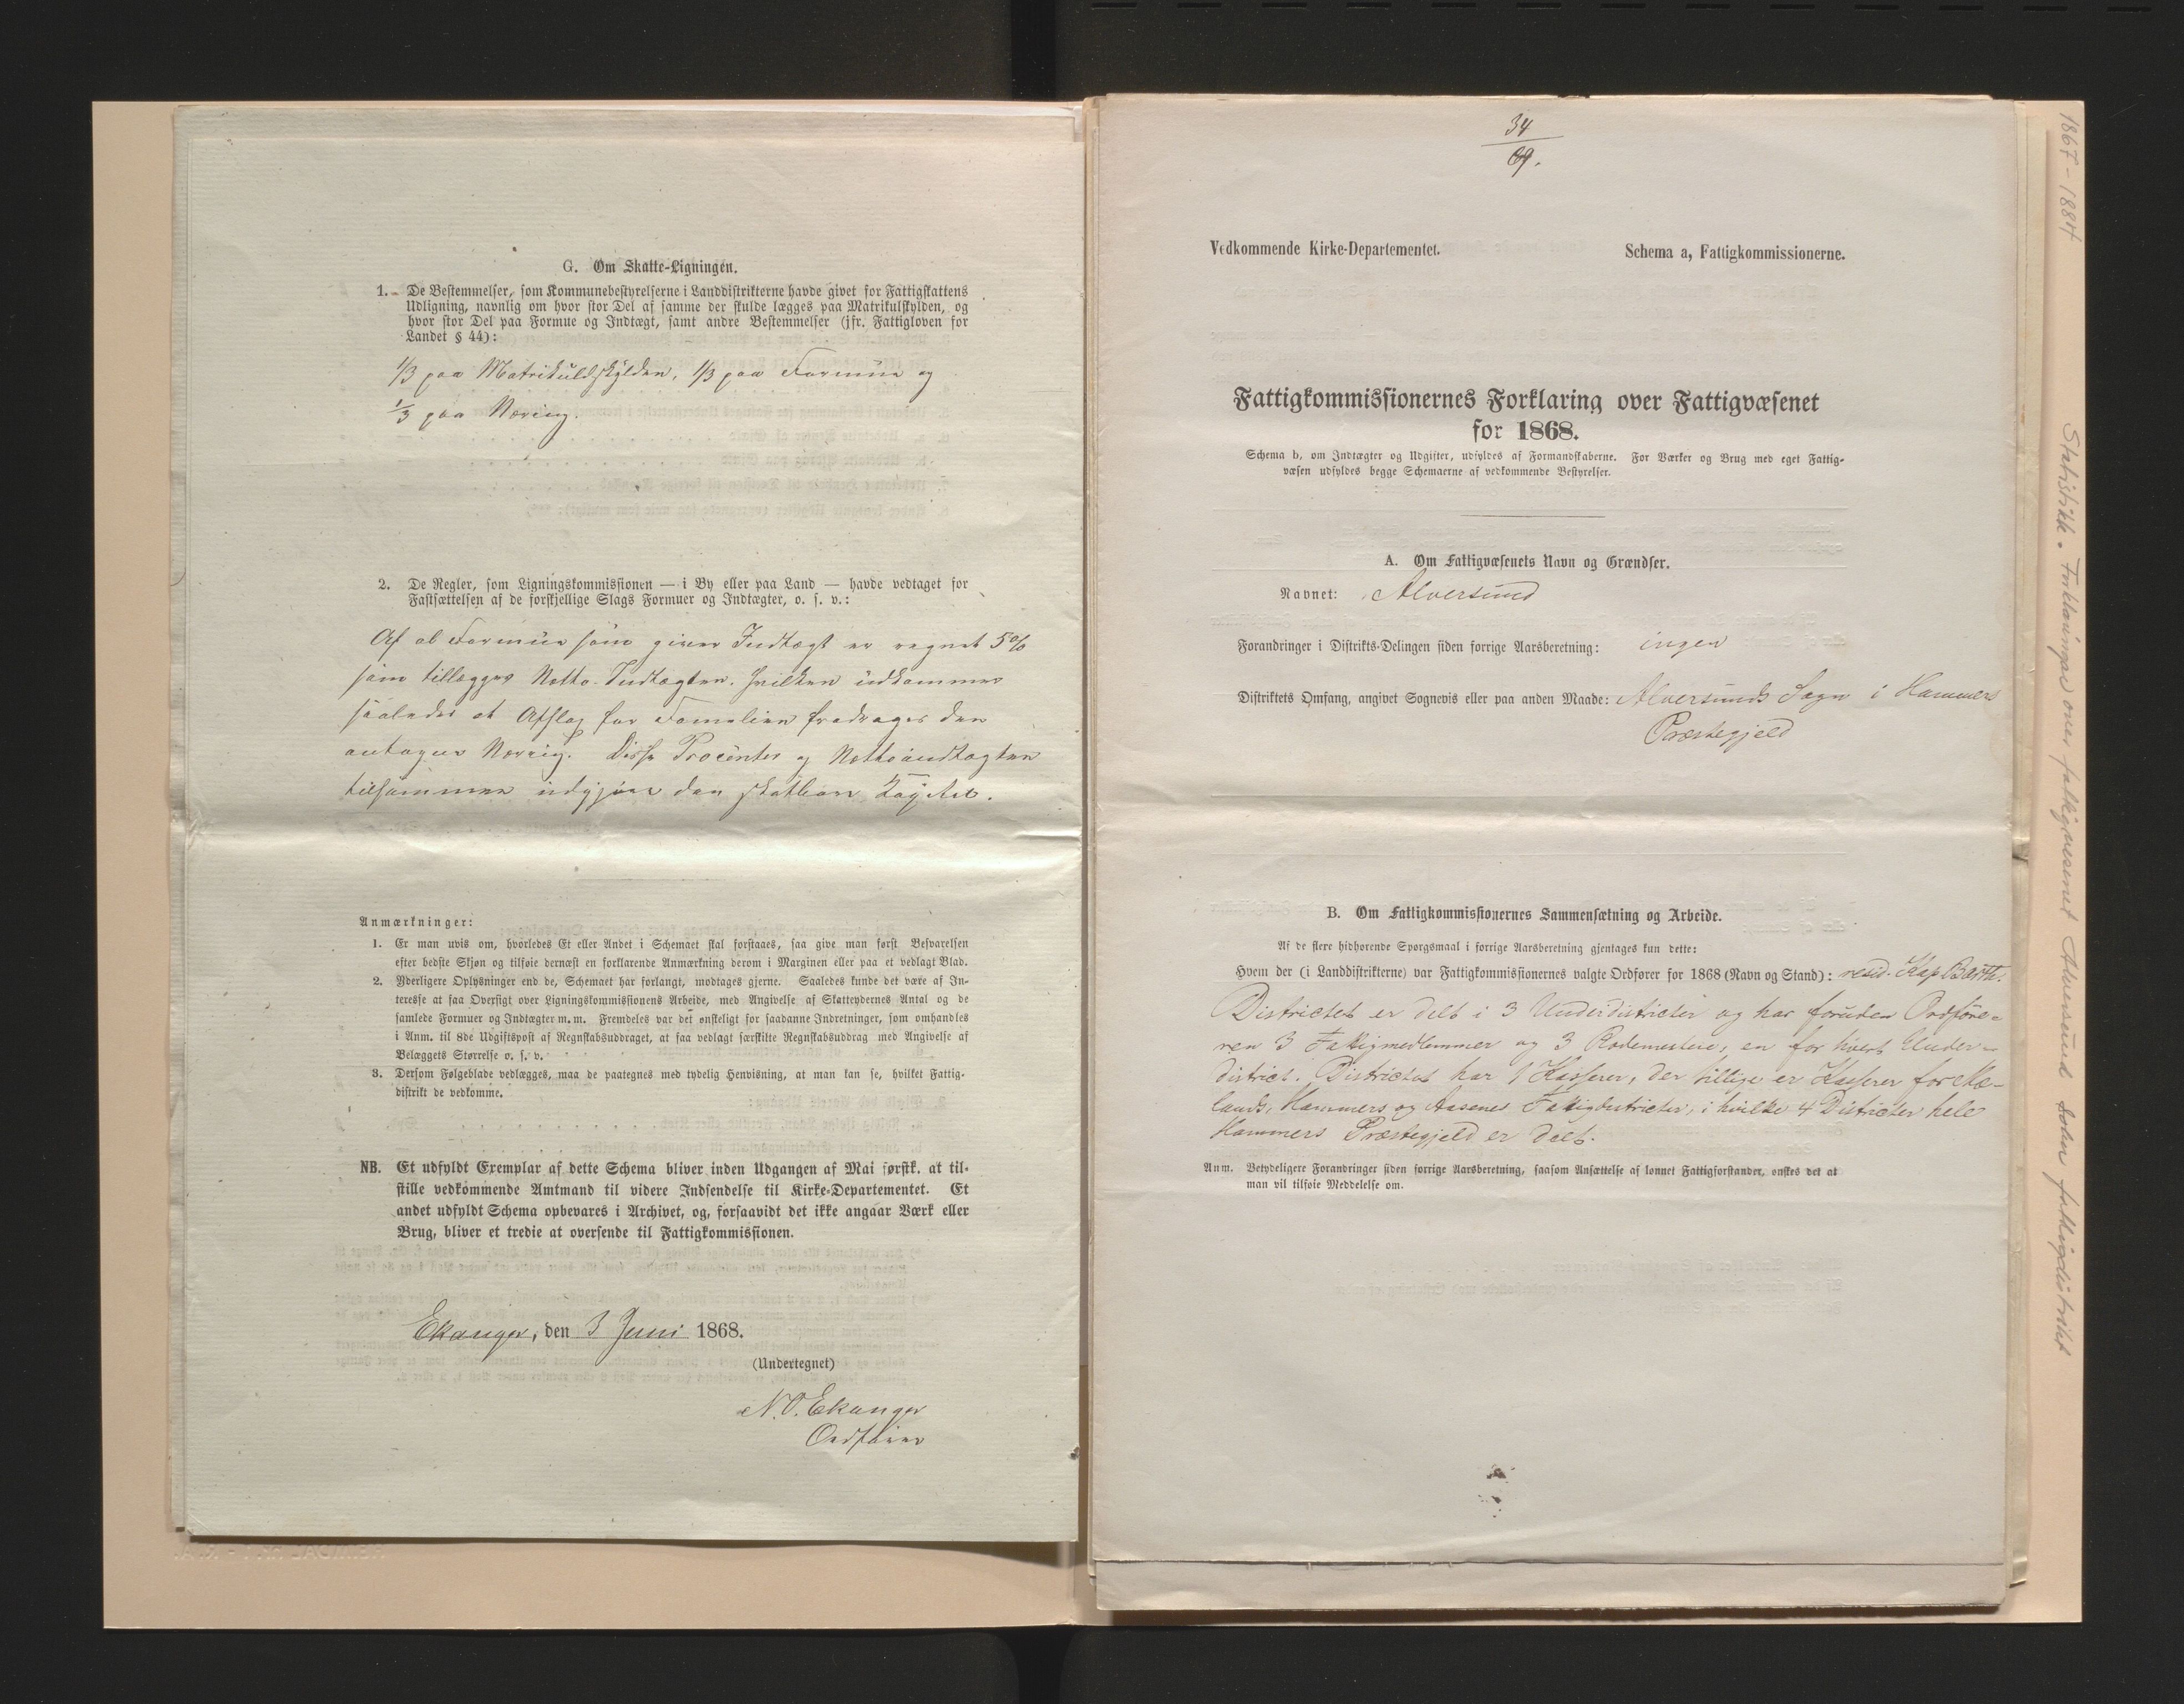 G. Om Skatte-Ligningen.
1. De Bestemmelser, som Kommunebestyrelserne i Landdistrikterne havde givet for Fattigskattens
Udligning, navnlig om hvor stor Del af samme der skulde lægges paa Matrikulskylden, og
hvor stor Del paa Formue og Indtægt, samt andre Bestemmelser (jfr. Fattigloven for
Landet § 44):
1/3 paa Matrikuldskylden, 1/3 paa Formue og
1/3 paa Næring.
2. De Regler, som Ligningskommissionen — i By eller paa Land — havde vedtaget for
Fastsættelsen af de forskjellige Slags Formuer og Indtægter, o. s. v.:
Af al Formue som giver Indtægt er regnet 5 %
som tillægges Netto-Indtægten, hvilken udkommer
saaledes at Afslag for Familien fradrages den
antagne Næring. Disse Procenter og Nettoindtægten
tilsammen udgjøre den skatbare
Anmærkninger:
1. Er man uvis om, hvorledes Et eller Andet i Schemaet skal forstaaes, saa give man først Besvarelsen
efter bedste Skjøn og tilføie dernæst en forklarende Anmærkning derom i Marginen eller paa et vedlagt Blad.
2. Yderligere Oplysninger end de, Schemaet har forlangt, modtages gjerne. Saaledes kunde det være af In-
teresse at faa Oversigt over Ligningskommissionens Arbeide, med Angivelse af Skatteydernes Antal og de
samlede Formuer og Indtægter m. m. Fremdeles var det ønskeligt for saadanne Indretninger, som omhandles
i Anm. til 8de Udgiftspost af Regnskabsuddraget, at faa vedlagt særskilte Regnskabsuddrag med Angivelse af
Belæggets Størrelse o. s. v.
3. Dersom Følgeblade vedlægges, maa de paategnes med tydelig Henvisning, at man kan se, hvilket Fattig-
distrikt de vedkomme.
NB. Et udfyldt Exemplar af dette Schema bliver inden Udgangen af Mai førstk. at til-
stille vedkommende Amtmand til videre Indsendelse til Kirke-Departementet. Et
andet udfyldt Schema opbevares i Archivet, og, forsaavidt det ikke angaar Værk eller
Brug, bliver et tredie at oversende til Fattigkommissionen.
Ekanger, den 3 Juni 1868.
(Undertegnet)
N. O. Ekanger
Ordfører
34
69.
Vedkommende Kirke-Departementet.
Schema a, Fattigkommissionerne.
Fattigkommissionernes Forklaring over Fattigvæsenet
for 1868.
Schema b, om Indtægter og Udgifter, udfyldes af Formandskaberne. For Værker og Brug med eget Fattig-
væsen udfyldes begge Schemaerne af vedkommende Bestyrelser.
A. Om Fattigvæsenets Navn og Grændser.
Navnet: Alversund
Forandringer i Distrikts-Delingen siden forrige Aarsberetning: ingen
Distriktets Omfang, angivet Sognevis eller paa anden Maade: Alversunds Sogn i Hammers
Præstegjeld
B. Om Fattigkommissionernes Sammensætning og Arbeide.
Af de flere hidhørende Spørgsmaal i forrige Aarsberetning gjentages kun dette:
Hvem der (i Landdistrikterne) var Fattigkommissionernes valgte Ordfører for 1868 (Navn og Stand): resid. Kap Barth.
Districtet er delt i 3 Underdistricter og har foruden Ordføre-
ren 3 Fattigmedlemmer og 3 Rodemestere, en for hvert Under-
district. Districtet har 1 Kasserer, der tillige er Kasserer for Mæ-
lands, Hammers og Aasenes Fattigdistricter, i hvilke 4 Districter hele
Hammers Præstegjeld er delt.
Anm. Betydeligere Forandringer siden forrige Aarsberetning, saasom Ansættelse af lønnet Fattigforstander, ønskes det at
man vil tilføie Meddelelse om.
1867 - 1884
Statistikk. Forklaringar over fattigvesenet Alversund sokn fattigdistrikt